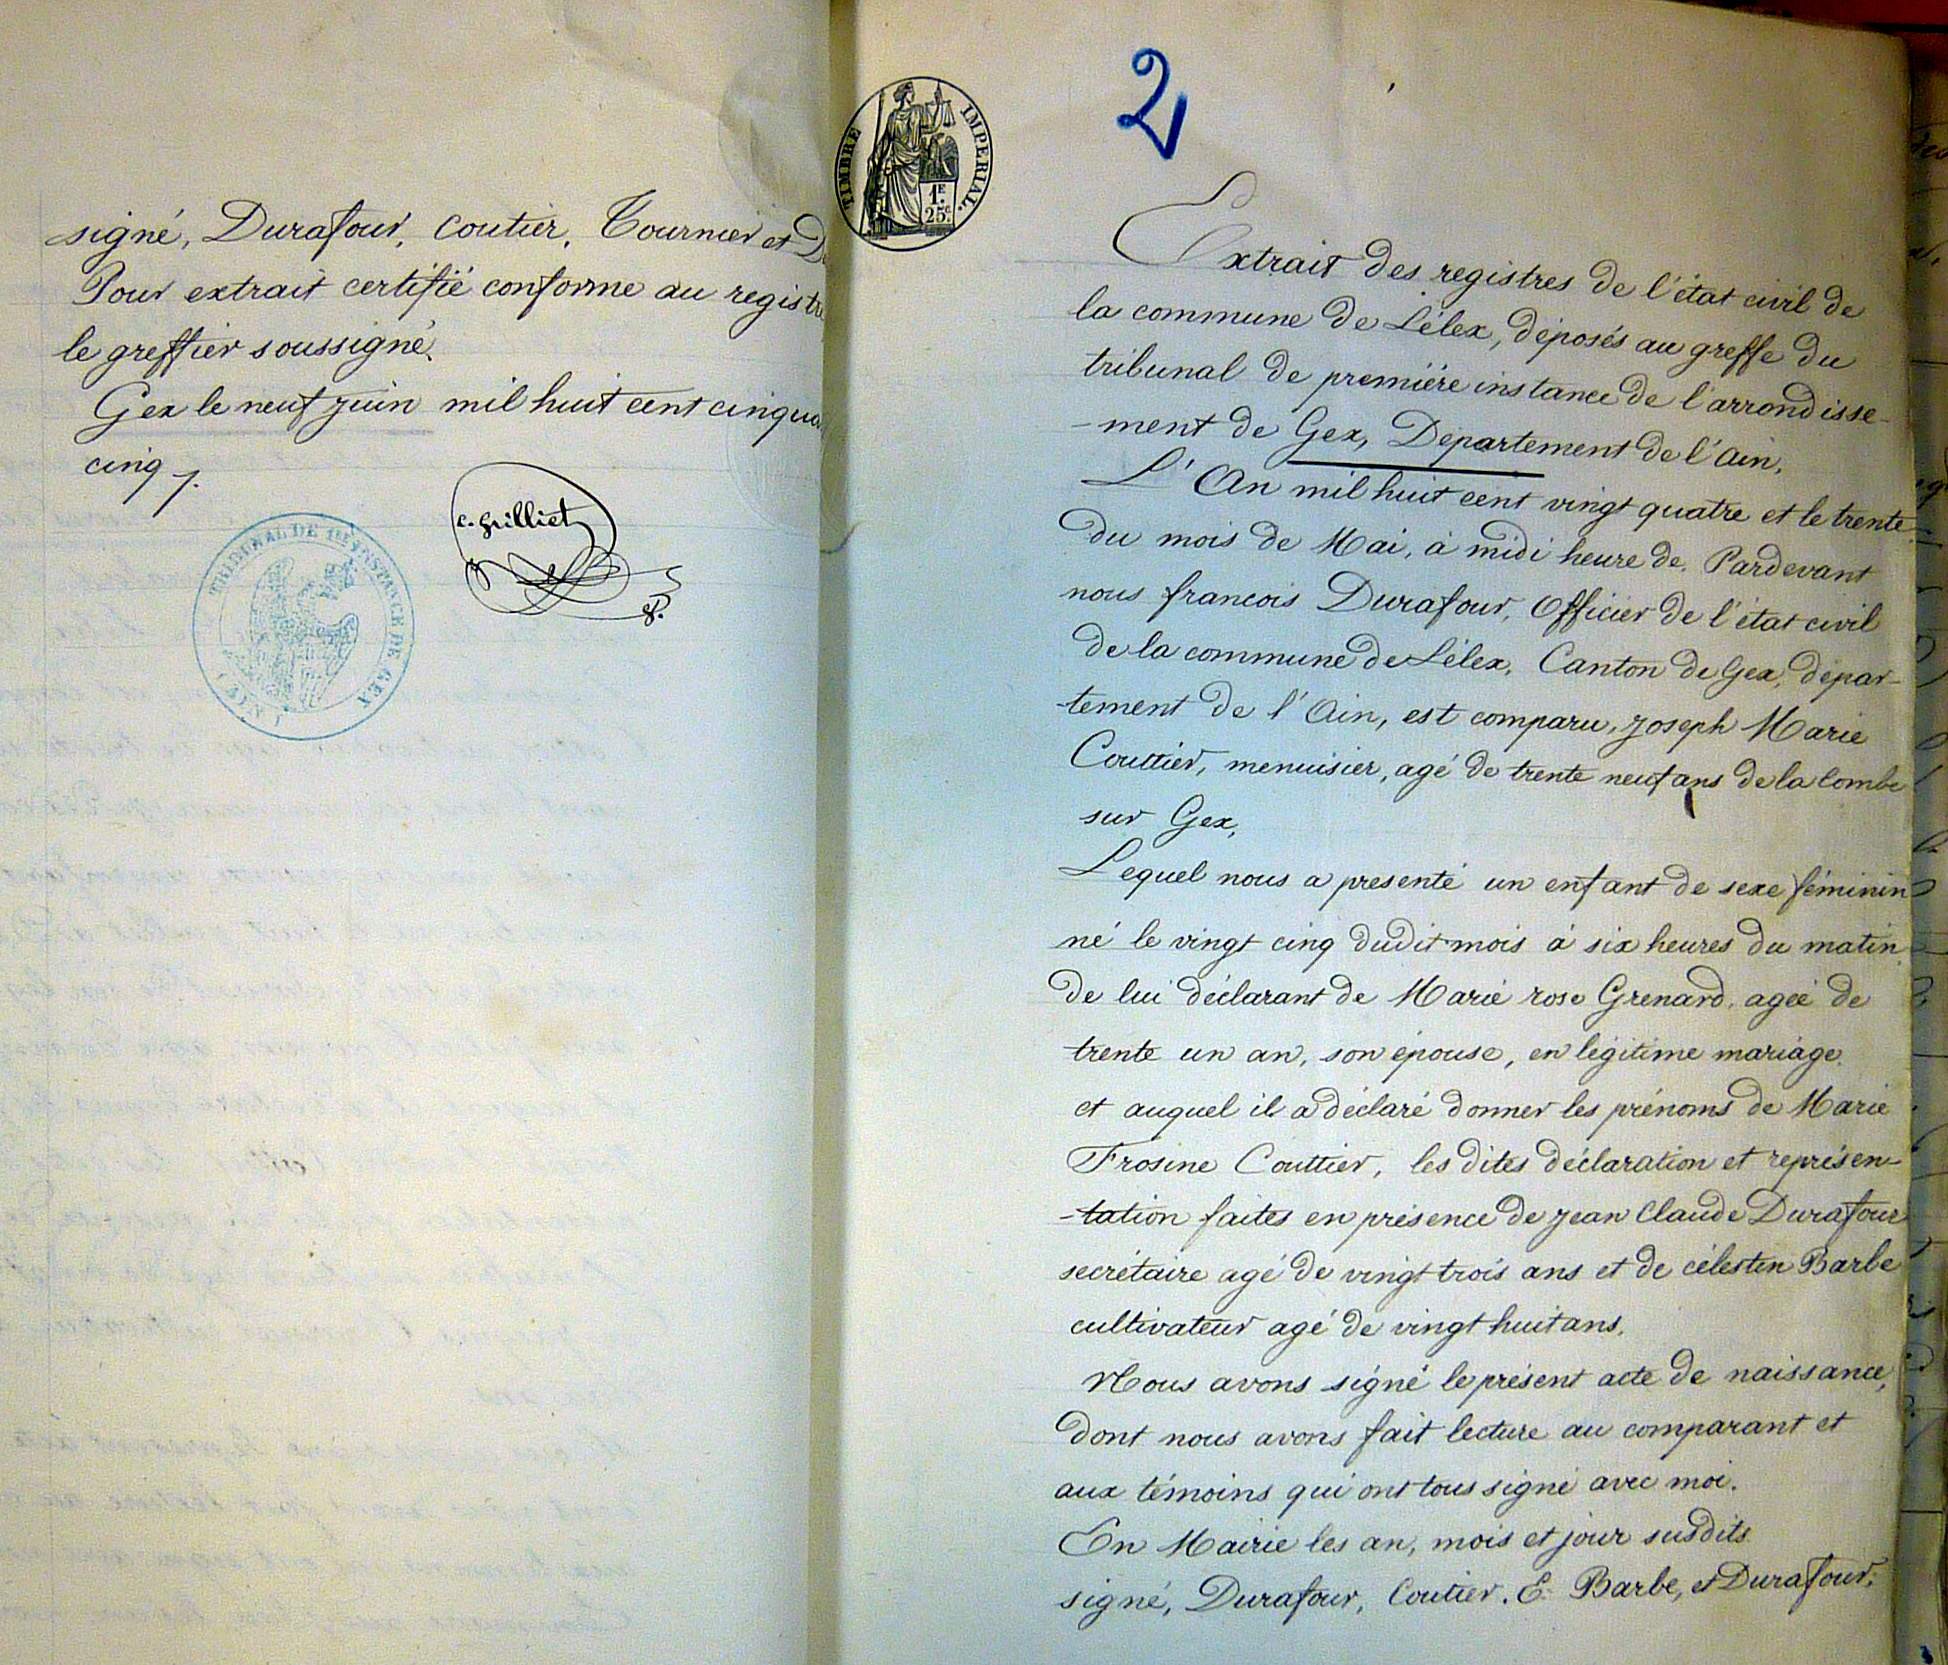 signé, Durafour, Coutier, Tournier et
Pour extrait certifié conforme au
le greffier soussigné.
Gex le neuf juin mil huit cent
cinq
c. Grilliet
TRIBUNAL DE 1ERE INSTANCE DE GEX
(AIN)
TIMBRE IMPERIAL.
1F.
25c.
2
Extrait des registres de l'état civil de
la commune de Lélex, déposés au greffe du
tribunal de première instance de l'arrondisse-
-ment de Gex, Departement de l'ain.
L'An mil huit cent vingt quatre et le trente
du mois de Mai, à midi heure de. Pardevant
nous francois Durafour, Officier de l'état civil
de la commune de Lélex, Canton de Gex, dépar-
-tement de l'Ain, est comparu, joseph Marie
Couttier, menuisier, agé de trente neuf ans de la Combe
sur Gex,
Lequel nous a presenté un enfant de sexe féminin
né le vingt cinq dudit mois à six heures du matin
de lui déclarant de Marie rose Grenard, ageé de
trente un an, son épouse, en légitime mariage.
et auquel il a déclaré donner les prénoms de Marie
Frosine Couttier, les dites déclaration et représen-
-tation faites en présence de jean Claude Durafour
secrétaire agé de vingt trois ans et de célestin Barbe
cultivateur agé de vingt huit ans.
Nous avons signé le présent acte de naissance,
dont nous avons fait lecture au comparant et
aux témoins qui ont tous signé avec moi.
En Mairie les an, mois et jour susdits
signé, Durafour, Coutier. E. Barbe, et Durafour.